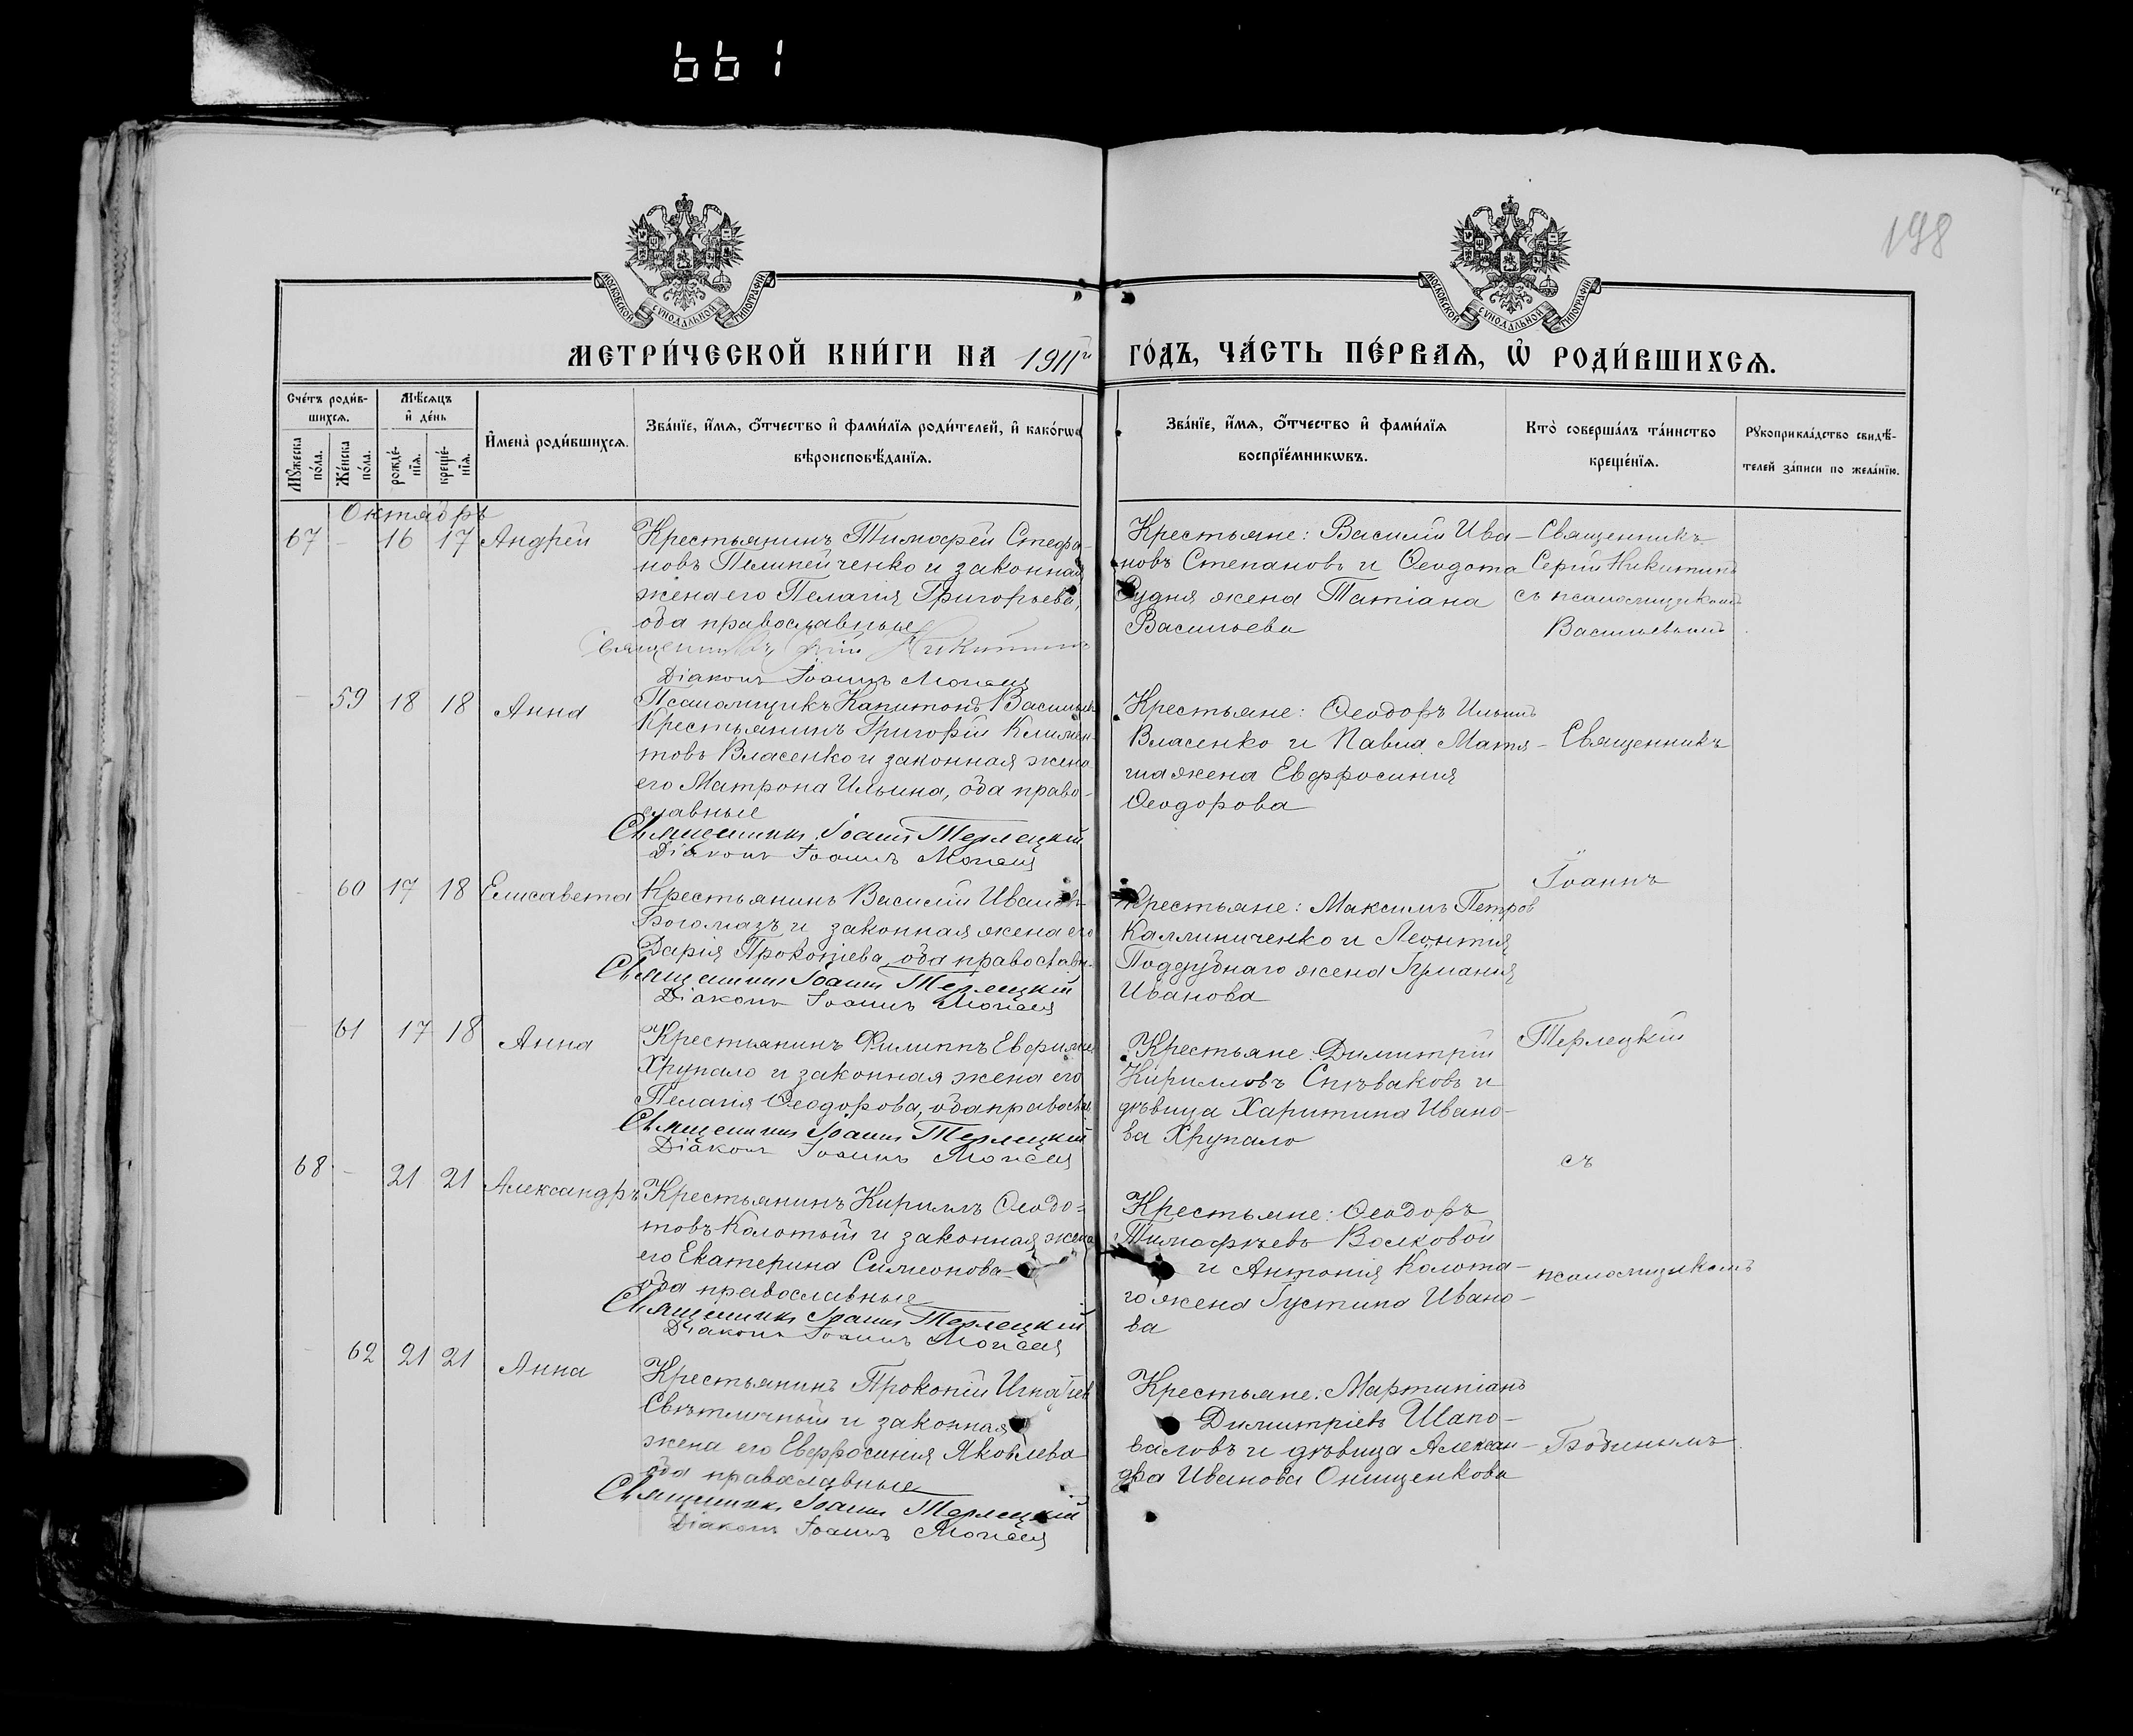 661
198
МОСКОВСКОЙ СѴНОДАЛЬНОЙ ТИПОГРАФІИ
МОСКОВСКОЙ СѴНОДАЛЬНОЙ ТИПОГРАФІИ
МЕТРИ́ЧЕСКОЙ КНИ́ГИ НА 1911й ГО́ДЪ, ЧА́СТЬ ПЕ́РВАѦ, Ѡ҆ РОДИ́ВШИХСѦ.
Сче́тъ роди́в-
шихсѧ.
Мꙋжеска по́ла.
Же́нска по́ла.
Мѣ́сѧцъ
и҆ де́нь
рожде́-
нїѧ.
креще́-
нїѧ.
И҆мена̀ роди́вшихсѧ.
Зва́нїе, и҆́мѧ, ѻ҆́тчество и҆ фами́лїѧ роди́телей, и҆ како́гѡ
вѣроисповѣ́данїѧ.
Зва́нїе, и҆́мѧ, ѻ҆́тчество и҆ фами́лїѧ
воспрїе́мникѡвъ.
Кто̀ соверша́лъ та́инство
креще́нїѧ.
Рꙋкоприкла́дство свидѣ́-
телей за́писи по жела́нїю.
Октябрь
67 - 16 17 Андрей
Крестьянинъ Тимофей Стефа-
новъ Пелипейченко и законная
жена его Пелагія Григорьева,
оба православные
Священникъ Сергій Никитинъ
Діаконъ Іоаннъ
Псаломщикъ Капитонъ Васильев
Крестьяне: Василій Ива-
новъ Степановъ и Ѳеодота
Рудня жена Татіана
Васильева
Священникъ
Сергій Никитинъ
съ псаломщикомъ
Васильевымъ
- 59 18 18 Анна
Крестьянинъ Григорій Климен-
товъ Власенко и законная жена
его Матрона Ильина, оба право-
славные
Священникъ Іоаннъ Терлецкій
Діаконъ Іоаннъ
Крестьяне: Ѳеодоръ Ильинъ
Власенко и Павла
жена Евфросинія
Ѳеодорова
Священникъ
- 60 17 18 Елисавета
Крестьянинъ Василій Ивановъ
Богомазъ и законная жена его
Дарія Прокопіева, оба православн.
Священникъ Іоаннъ Терлецкій
Діаконъ Іоаннъ
Крестьяне: Максимъ Петров
Каллиниченко и Леонтія
Поддубнаго жена Іуліанія
Иванова
Іоаннъ
- 61 17 18 Анна
Крестьянинъ Филиппъ
Хрупало и законная жена его
Пелагія Ѳеодорова, оба правосла
Священникъ Іоаннъ Терлецкій
Діаконъ Іоаннъ
Крестьяне: Димитрій
Кирилловъ Спѣваковъ и
дѣвица Харитина Ивано-
ва Хрупало
Терлецкій
съ
68 - 21 21 Александръ
Крестьянинъ Кириллъ Ѳеодо-
товъ Колотый и законная жена
его Екатерина Симеонова
оба православные
Священникъ Іоаннъ Терлецкій
Діаконъ Іоаннъ
Крестьяне: Ѳеодоръ
Тимофѣевъ Волковой
и Антонія Колота-
го жена Іустина Ивано-
ва
псаломщикомъ
- 62 21 21 Анна
Крестьянинъ Прокопій Игнатіев
Свѣтличный и законная
жена его Евфросинія Яковлева
оба православные
Священникъ Іоаннъ Терлецкій
Діаконъ Іоаннъ
Крестьяне: Мартиніанъ
Димитріевъ Шапо-
валовъ и дѣвица Алексан-
дра Иванова Онищенкова